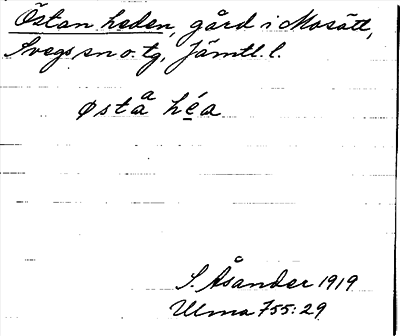 Östan heden, gård i Mosätt,
Svegs sn o. tg, Jämtl. l.
østå̊ hé̲a
S. Åsander 1919
Ulma 755:29